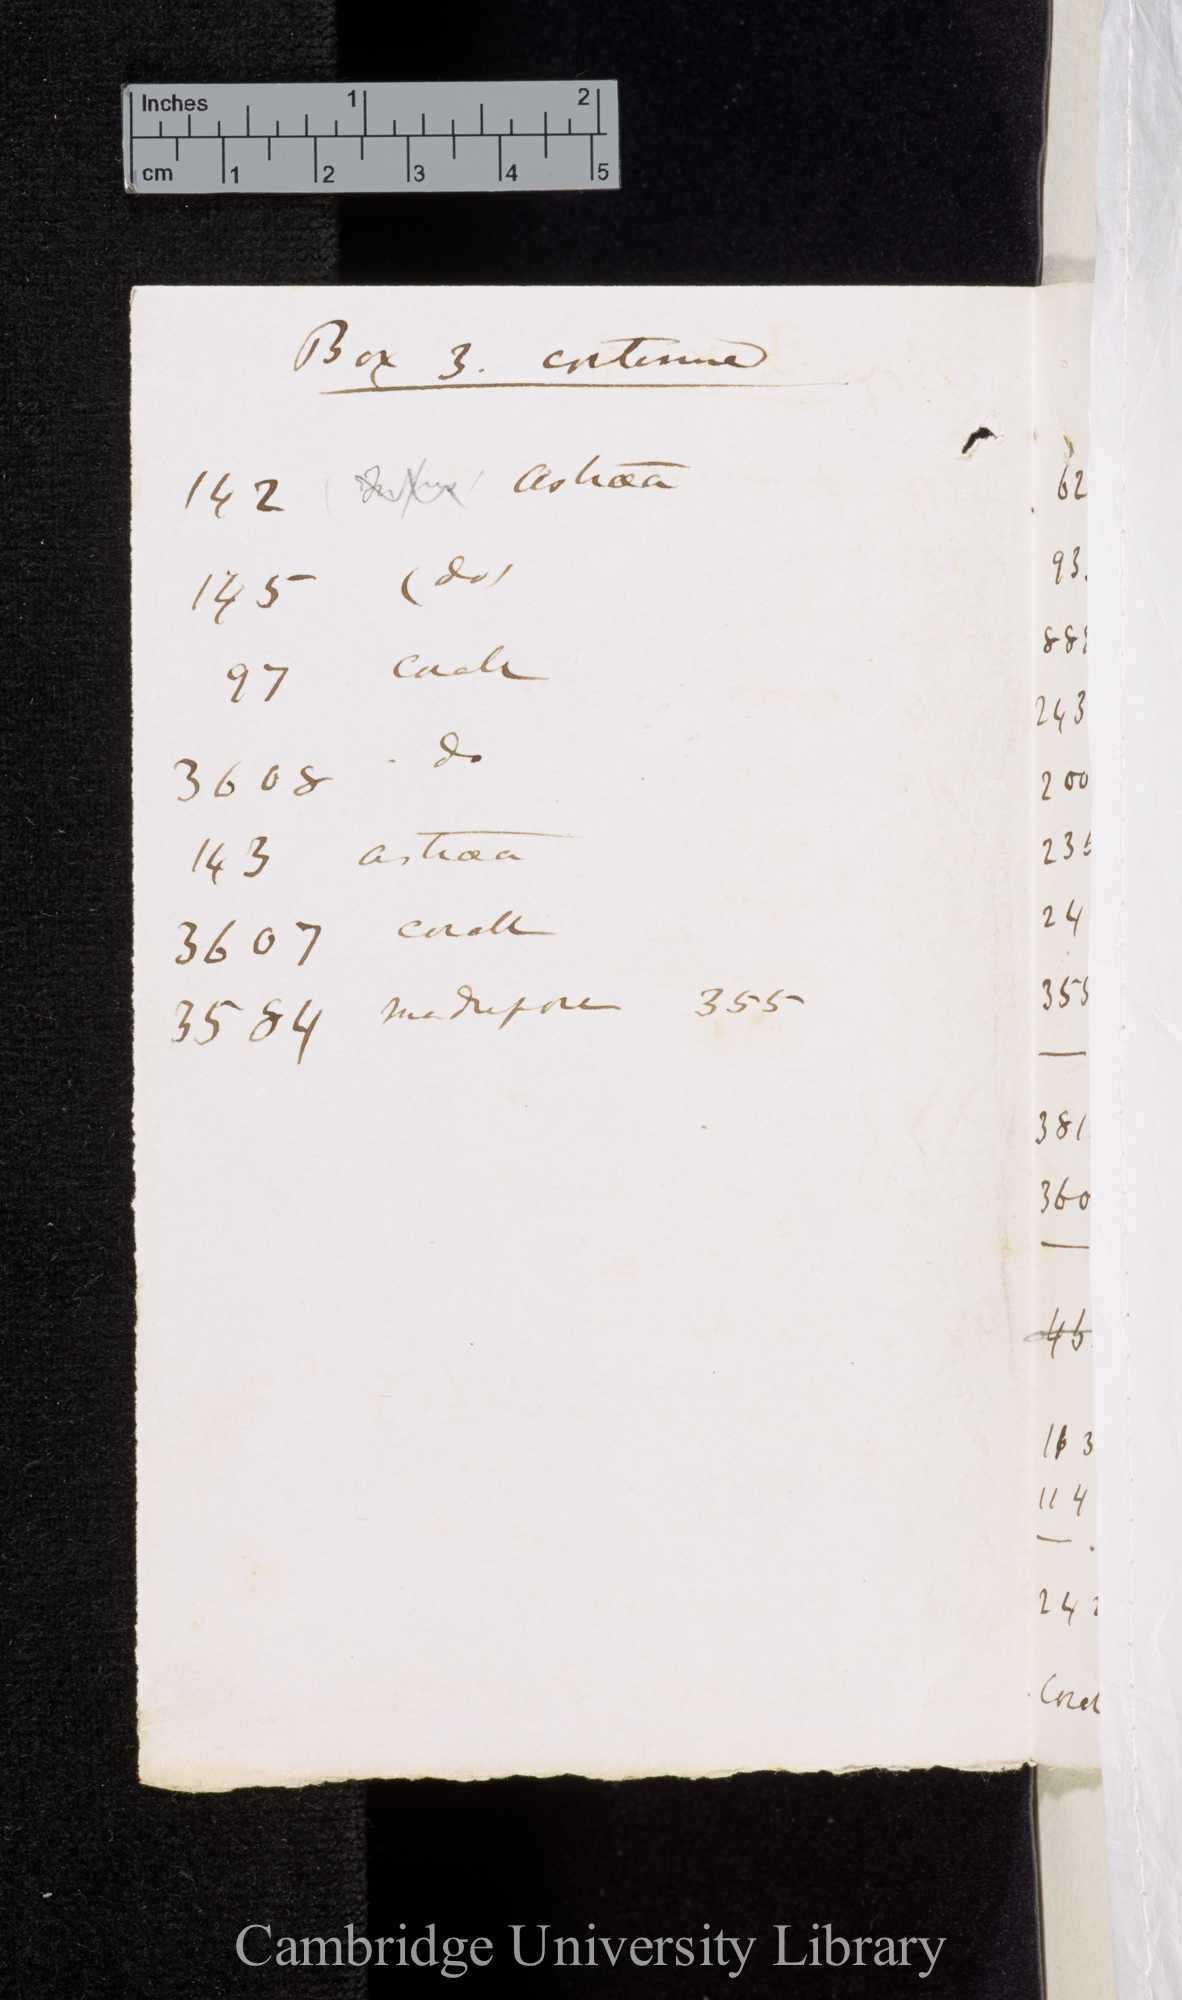 Inches 1 2
cm 1 2 3 4 5
Box 3. continued
142 Astræa
145 (do)
97 Corall
3608 do
143 astræa
3607 corall
3584 madrepore 355
62
93.
888
243
200
236
24
355
381
360
46
113
114
242
Coral
Cambridge University Library